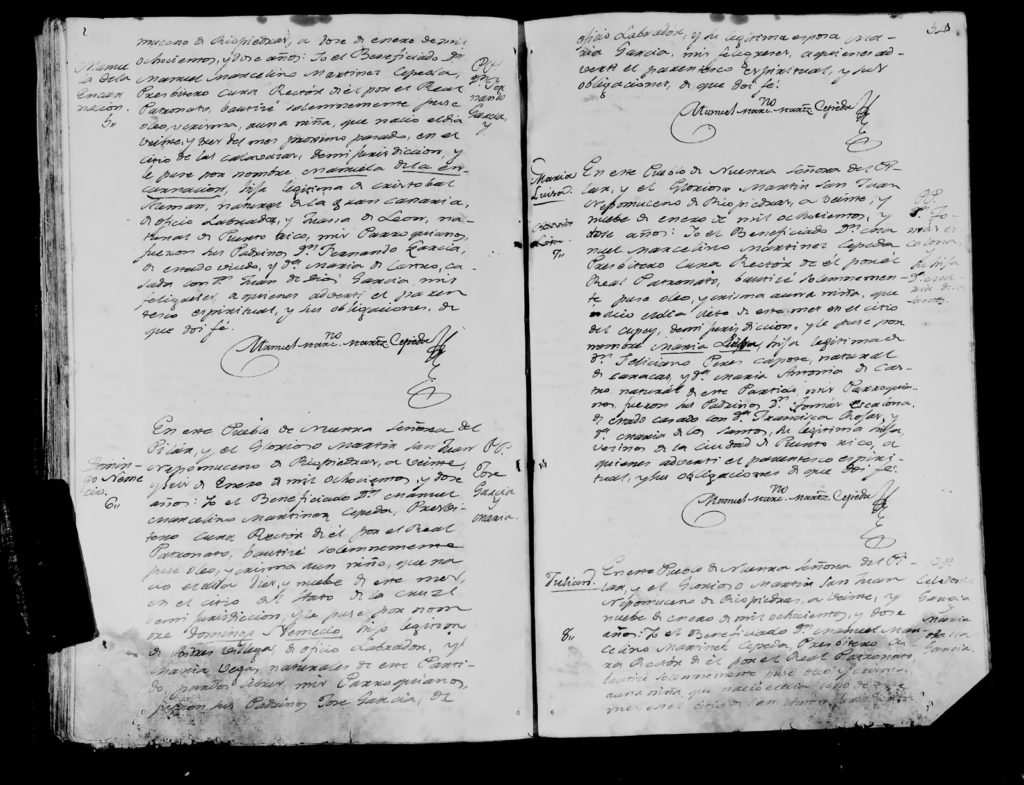 muceno de Riopiedras, a dose de enero de mil
ochocientos, y dose años: Yo el Beneficiado Dn.
Manuel Marcelino Martinez Cepeda,
Presvitero Cura Rector de él por el Real
Patronato, bautizé solemnemente puse
oleo, y crisma, a una niña, que nacio el dia
veinte, y tres del mes proximo pasado, en el
citio de las calavazas, de mi jurisdiccion, y
le puse por nombre, Manuela de la en-
carnacion, hija legitima de cristobal
natural de la gran canaria,
de oficio Labrador, y Juana de Leon, na-
tural de Puerto Rico, mis Parroquianos,
fueron sus Padrinos Dn. Fernando Garcia,
de estado viudo, y Da. Maria de Castro, ca-
sada con Dn. Juan de Dios Garcia, mis
feligreses, a quienes adverti el paren
tesco espiritual, y sus obligaciones, de
que doi fé.
Manuel Marc.no Martz Cepeda
Manue
la dela
Encar
nacion.
5,,
PP.
Dn. Fer
nando
Garcia,
y
En este Pueblo de Nuestra Señora del
Pilár, y el Glorioso Martir San Juan
Nepomuceno de Riopiedras, a veinte,
y seis de Enero de mil ochocientos, y dose
años: Yo el Beneficiado Dn. Manuel
Marcelino Martinez Cepeda, Presvi-
tero Cura Rector de él por el Real
Patronato, bautizé solemnemente
puse oleo, y crisma a un niño, que na-
cio el dia diez, y nuebe de este mes,
en el citio del Hato de la cruz
de mi jurisdiccion, y le puse por nom
bre Domingo Nemecio, hijo legitimo
de Andres Villegas, de oficio Labrador, y
Maria Vega, naturales de este Parti-
do, mis Parroquianos,
fueron sus Padrinos Jose Garcia, de
Domin-
go Neme
cio.
6,,
PP.
Jose
Garcia
y
Maria.
oficio Labrador, y su legitima esposa Ma-
ria Garcia, mis feligreses, a quienes ad-
verti el parentesco espiritual, y sus
obligaciones, de que doi fé.
Manuel Marc.no Martz Cepeda
En este Pueblo de Nuestra Señora del Pi-
lar, y el Glorioso Martir San Juan
Nepomuceno de Riopiedras, a veinte, y
nuebe de enero de mil ochocientos, y
dose años: Yo el Beneficiado Dn. Ma
nuel Marcelino Martinez Cepeda
Presvitero Cura Rector de él por el
Real Patronato, bautizé solemnemen-
te puse oleo, y crisma a una niña, que
nacio el dia siete de este mes en el citio
del cupey, de mi jurisdiccion, y le puse por
nombre Maria Luisa, hija legitima de
Dn. Feliciano Peres Capote, natural
de caracas, y Da. Maria Antonia de Cas-
tro natural de este Partido mis Parroquia-
nos, fueron sus Padrinos Dn. Tomás Escalona,
de estado casado con Da. Francisca Rosas, y
Da. Maria de los Santos, su legitima hija
vesinos de la ciudad de Puerto Rico, a
quienes adverti el parentesco espiri-
tual, y sus obligaciones de que doi fé.
Manuel Marc.no Martz Cepeda
Maria
Luisa.
7,,
PP.
Dn. To-
más Es
calona,
y
su hija
Da. Ma
ria de los
Santos.
En este Pueblo de Nuestra Señora del Pi-
lar, y el Glorioso Martir San Juan
Nepomuceno de Riopiedras, a veinte, y
nuebe de enero de mil ochocientos, y dose
años: Yo el Beneficiado Dn. Manuel Mar-
celino Martinez Cepeda, Presvitero Cu-
ra Rector de él por el Real Patronato
bautizé solemnemente puse oleo, y crisma
a una niña, que nacio el dia ocho de este
mes, en el citio de San Anton,
Julian.
8,,
PP.
Celedonio
Garcia
y
Maria
Garcia.